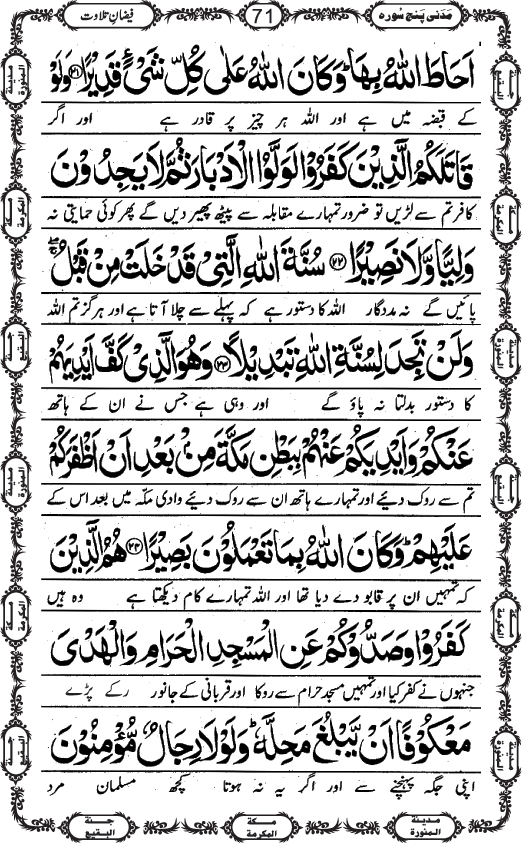 مَدَنی پنج سُورہ
71
فیضانِ تلاوت
اَحَاطَ اللّٰهُ بِهَا ؕ وَ كَانَ اللّٰهُ عَلٰى كُلِّ شَیْءٍ قَدِیْرًا ﴿۲۱﴾ وَ لَوْ
کے قبضہ میں ہے اور اللہ ہر چیز پر قادر ہے اور اگر
قَاتَلَكُمُ الَّذِیْنَ كَفَرُوْا لَوَلَّوُا الْاَدْبَارَ ثُمَّ لَا یَجِدُوْنَ
کافر تم سے لڑیں تو ضرور تمہارے مقابلہ سے پیٹھ پھیر دیں گے پھر کوئی حمایتی نہ
وَلِیًّا وَّ لَا نَصِیْرًا ﴿۲۲﴾ سُنَّةَ اللّٰهِ الَّتِیْ قَدْ خَلَتْ مِنْ قَبْلُ ۖۚ
پائیں گے نہ مددگار اللہ کا دستور ہے کہ پہلے سے چلا آتا ہے اور ہرگز تم اللہ
وَ لَنْ تَجِدَ لِسُنَّةِ اللّٰهِ تَبْدِیْلًا ﴿۲۳﴾ وَ هُوَ الَّذِیْ كَفَّ اَیْدِیَهُمْ
کا دستور بدلتا نہ پاؤ گے اور وہی ہے جس نے ان کے ہاتھ
عَنْكُمْ وَ اَیْدِیَكُمْ عَنْهُمْ بِبَطْنِ مَكَّةَ مِنْۢ بَعْدِ اَنْ اَظْفَرَكُمْ
تم سے روک دیئے اور تمہارے ہاتھ ان سے روک دیئے وادی مکّہ میں بعد اس کے
عَلَیْهِمْ ؕ وَ كَانَ اللّٰهُ بِمَا تَعْمَلُوْنَ بَصِیْرًا ﴿۲۴﴾ هُمُ الَّذِیْنَ
کہ تمہیں ان پر قابو دے دیا تھا اور اللہ تمہارے کام دیکھتا ہے وہ ہیں
كَفَرُوْا وَ صَدُّوْكُمْ عَنِ الْمَسْجِدِ الْحَرَامِ وَ الْهَدْیَ
جنہوں نے کفر کیا اور تمہیں مسجد حرام سے روکا اور قربانی کے جانور رکے پڑے
مَعْكُوْفًا اَنْ یَّبْلُغَ مَحِلَّهٗ ؕ وَ لَوْ لَا رِجَالٌ مُّؤْمِنُوْنَ
اپنی جگہ پہنچنے سے اور اگر یہ نہ ہوتا کچھ مسلمان مرد
مدینۃ المنورۃ
مکۃ المکرمۃ
جنۃ البقیع